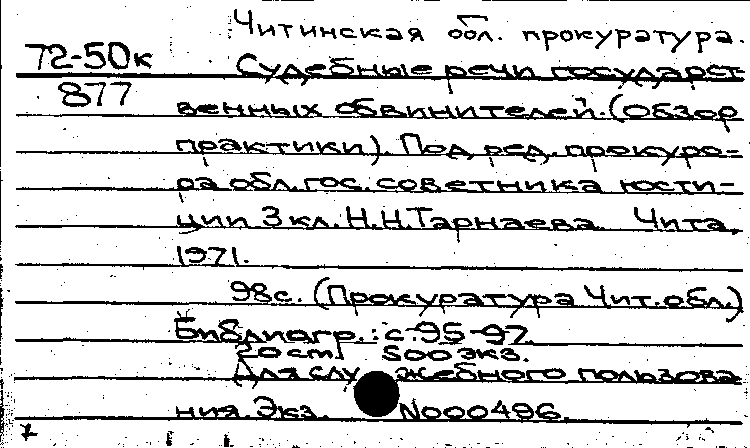 Читинская обл. прокуратура.
72-50к
Судебные речи государст-
877
венных обвинителей. (Обзор
практики). Под ред. прокуро-
ра обл. гос. советника юсти-
ции 3 кл. Н.Н.Тарнаева. Чита,
1971.
98с. (Прокуратура Чит. обл.)
Библиогр.: с.95-97.
20 cm. 500 экз.
Для служебного пользова
ния. Экз. N000496.